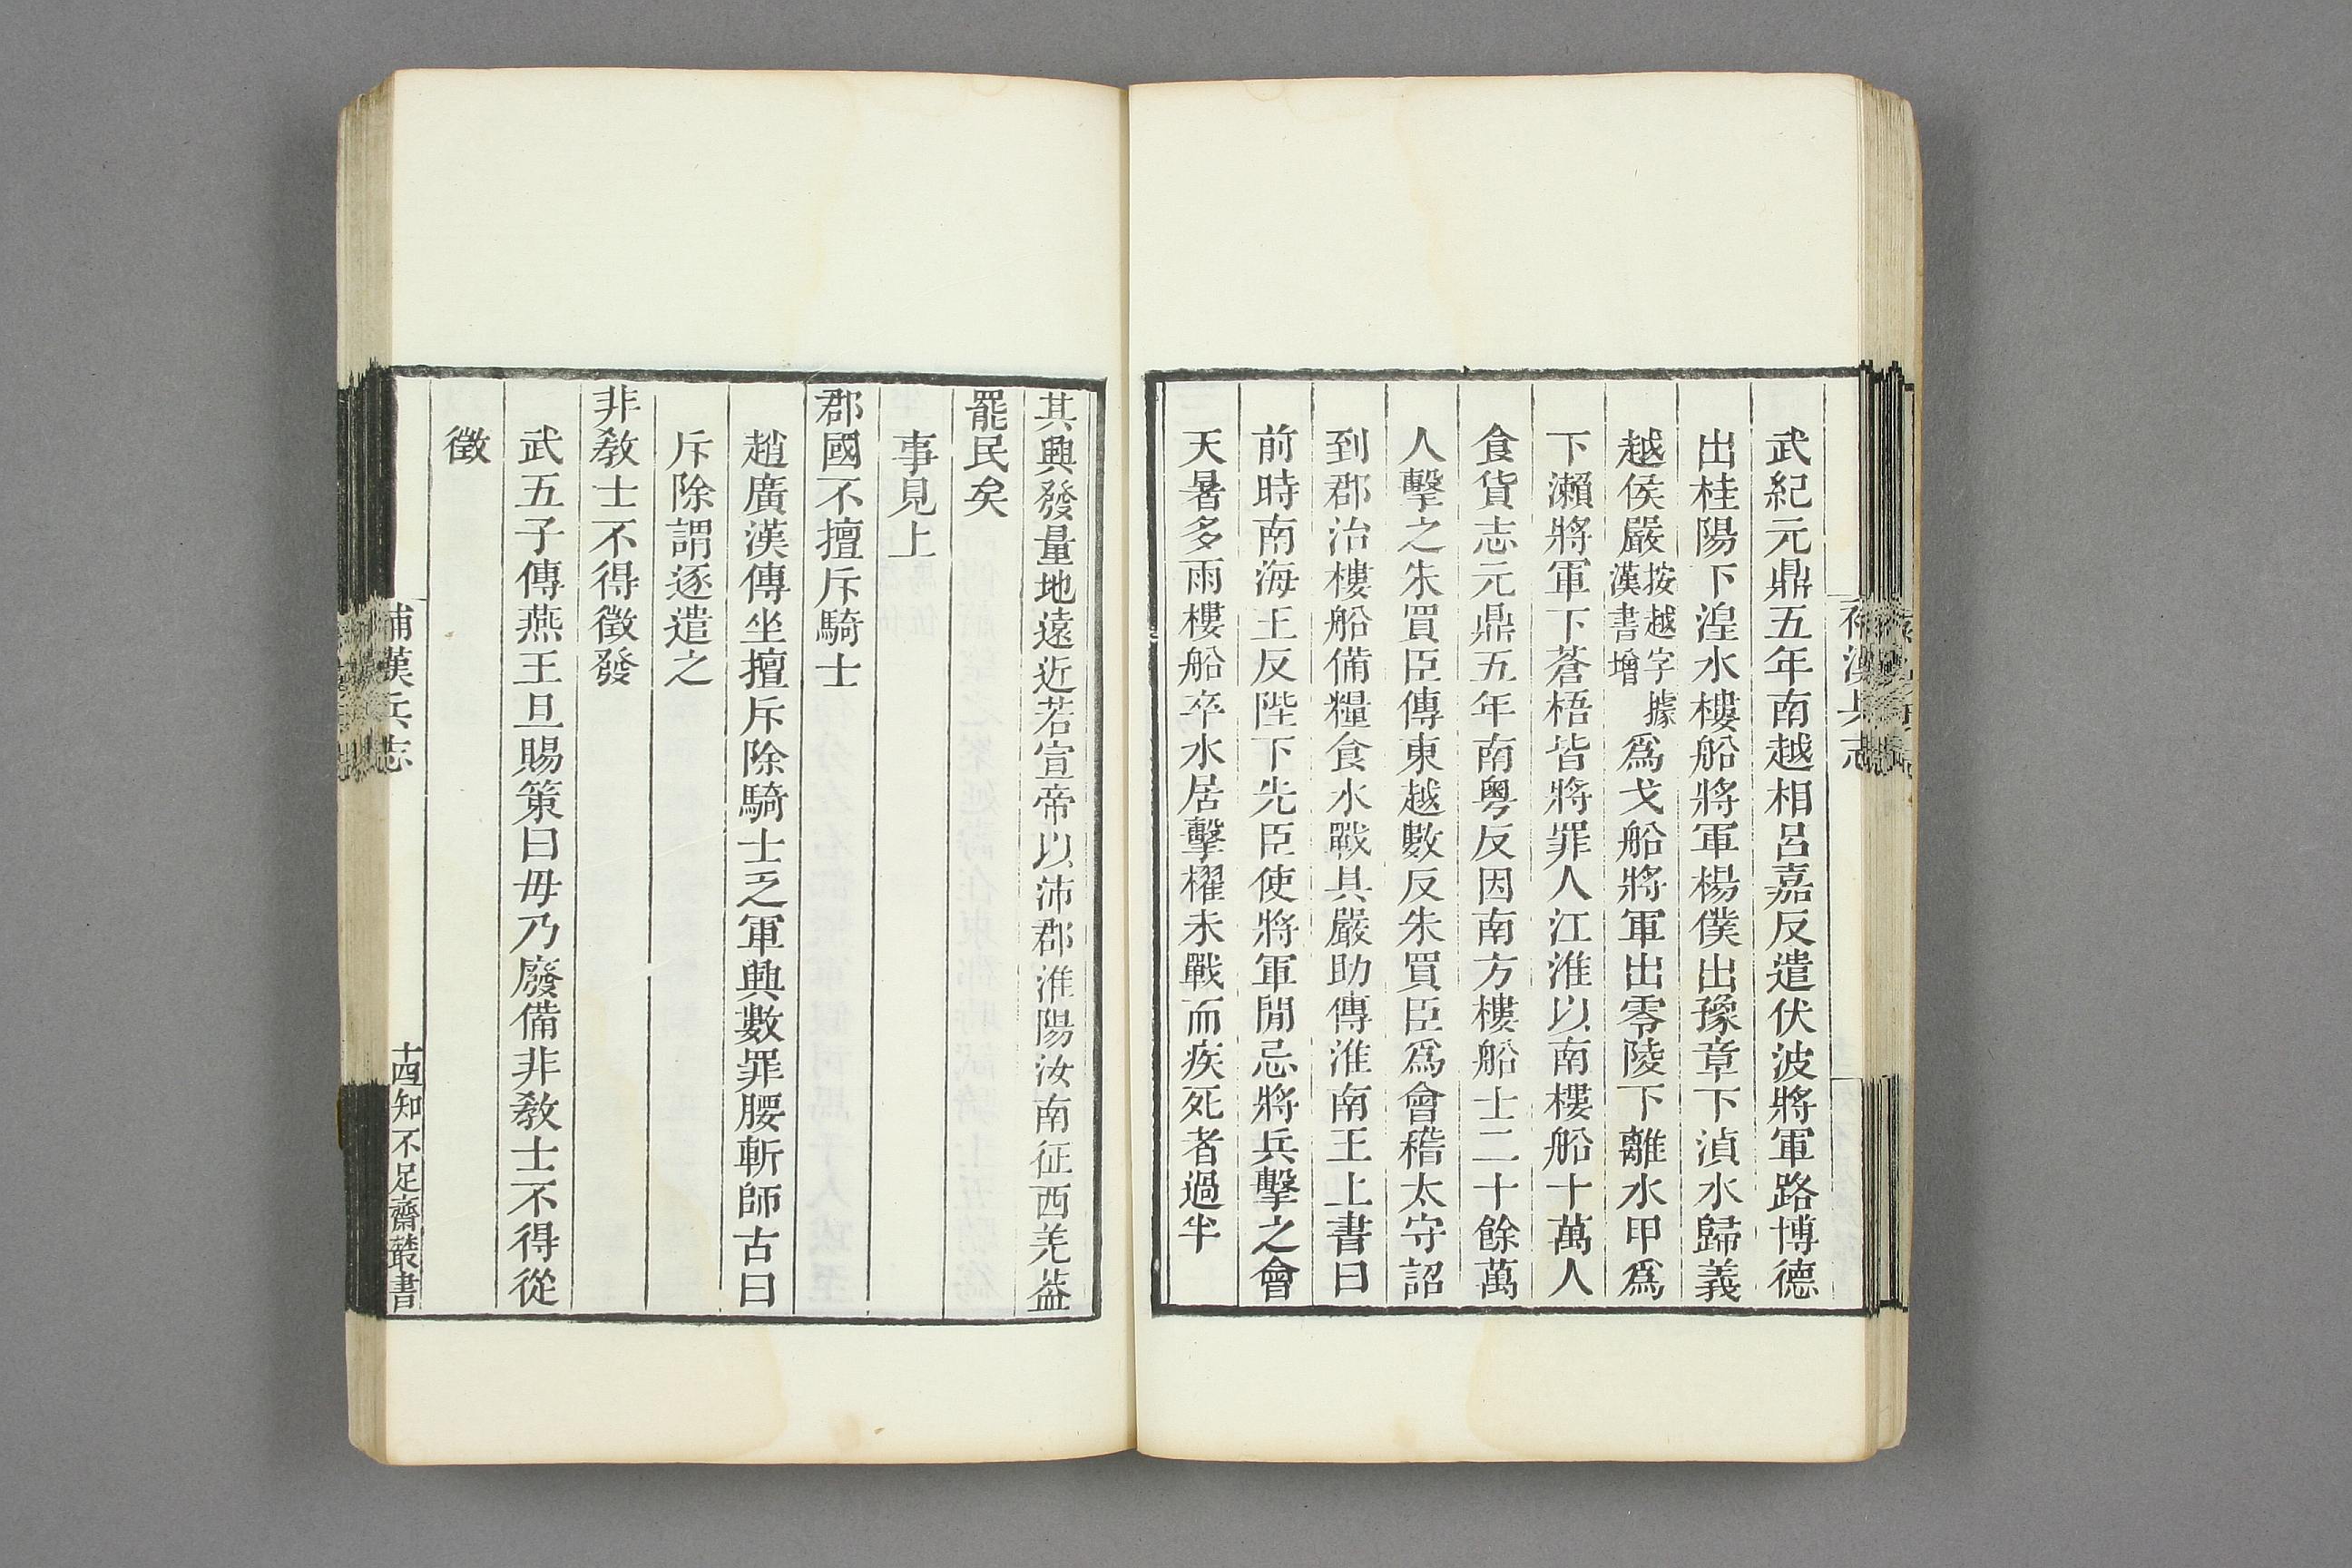 補漢兵志
武紀元鼎五年南越相呂嘉反遣伏波將軍路博德
出桂陽下湟水樓船將軍楊僕出豫章下湞水歸義
越侯嚴按越字據漢書增爲戈船將軍出零陵下離水甲爲
下瀨將軍下蒼梧皆將罪人江淮以南樓船十萬人
食貨志元鼎五年南粵反因南方樓船士二十餘萬
人擊之朱買臣傳東越數反朱買臣爲會稽太守詔
到郡治樓船備糧食水戰具嚴助傳淮南王上書曰
前時南海王反陛下先臣使將軍閒忌將兵擊之會
天暑多雨樓船卒水居擊櫂未戰而疾死者過半
其興發量地遠近若宣帝以沛郡淮陽汝南征西羌益
罷民矣
事見上
郡國不擅斥騎士
趙廣漢傳坐擅斥除騎士乏軍興數罪腰斬師古曰
斥除謂逐遣之
非敎士不得徵發
武五子傳燕王旦賜策曰毋乃廢備非敎士不得從
徵
補漢兵志
十四
知不足齋叢書